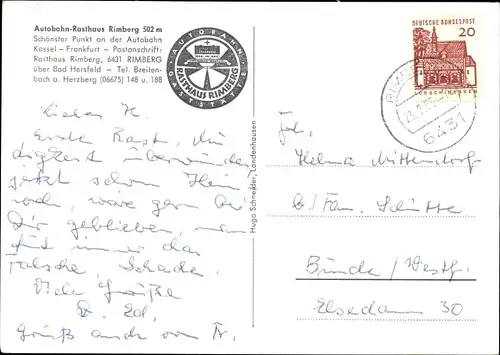 Autobahn-Rasthaus Rimberg 502 m
Schönster Punkt an der Autobahn
Kassel – Frankfurt – Postanschrift:
Rasthaus Rimberg, 6431 RIMBERG
über Bad Hersfeld – Tel. Breiten-
bach a. Herzberg (06675) 148 u. 188
AUTOBAHN
RASTHAUS RIMBERG
GASTSTÄTTE
DEUTSCHE BUNDESPOST
20
LORSCH/HESSEN
6431
Hugo Schneider, Landenhausen
Liebes H.
Erste Rast,
überwunden
jetzt schon Heim
weh, wäre gern bei
Dir geblieben, man
tut immer das
Falsche, Schade.
Viele Grüße
D. Ed.
Gruß auch von Tr.
Helma Mittendorf
b/Fam. Schütte
Bünde/Westf.
Elsedamm 30